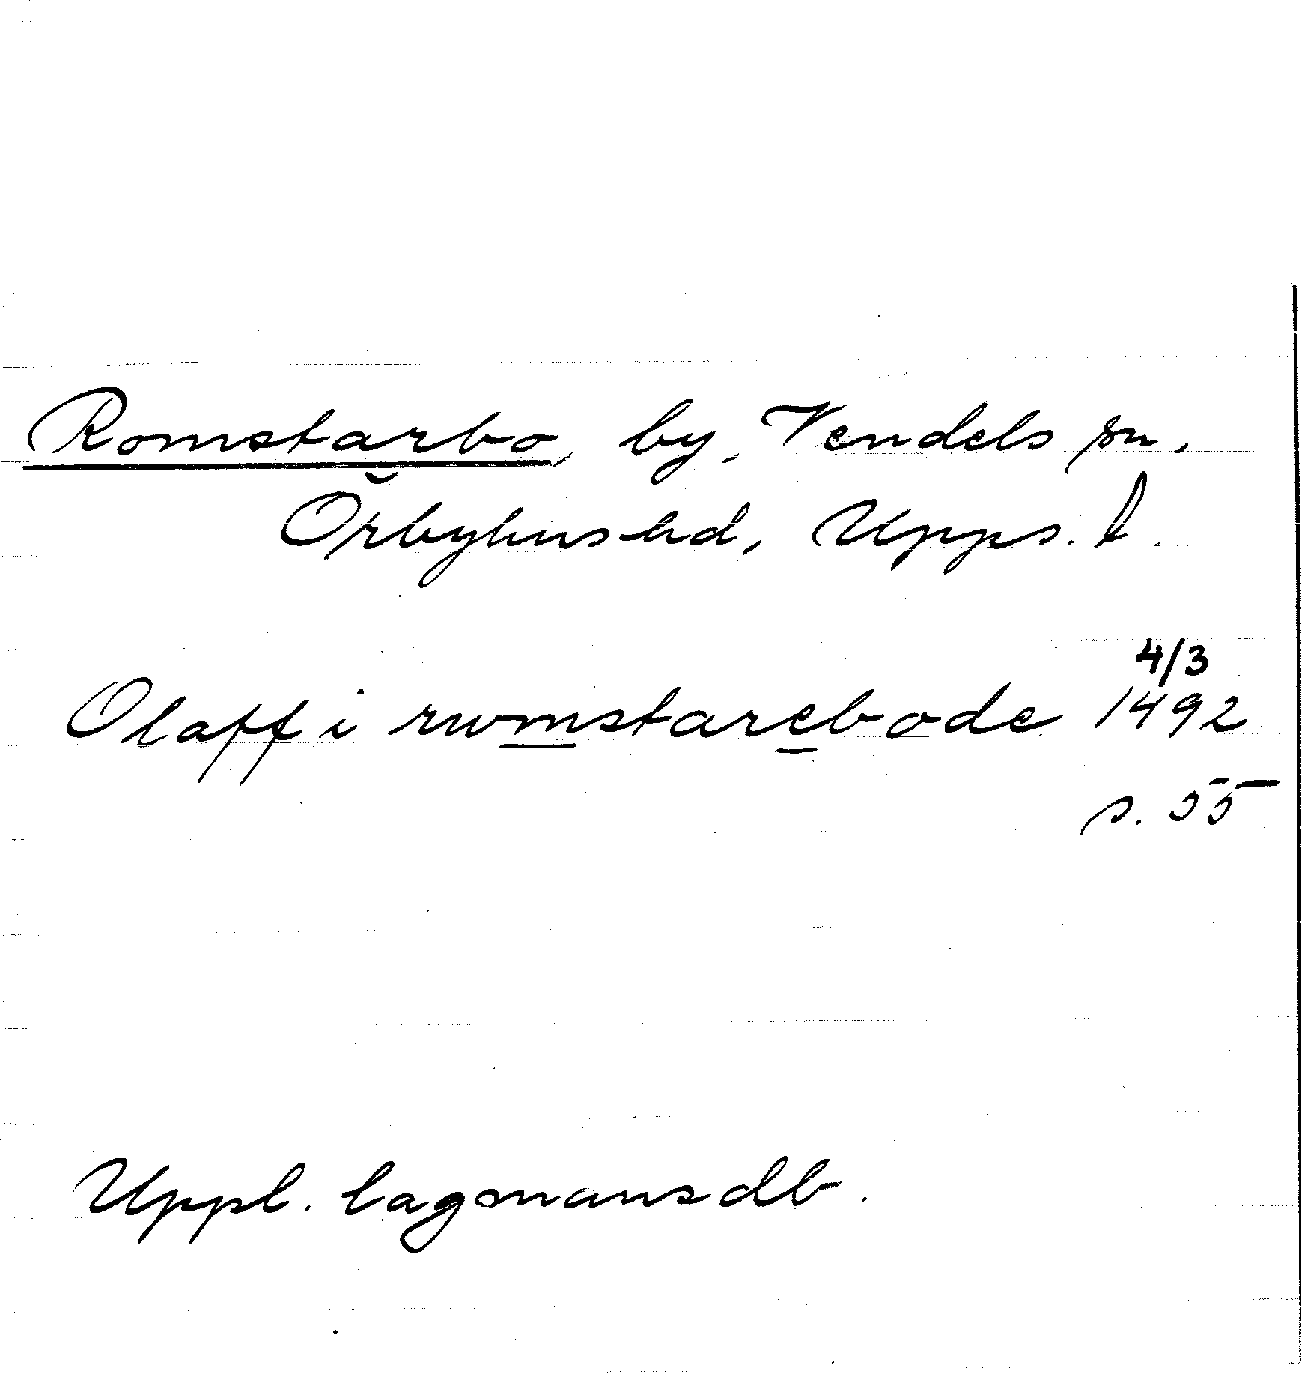 Romstarbo, by, Vendels sn.
Örbyhus hd, Upps. l.
4/3
Olaff i rwmstarebode 1492
s. 55
Uppl. lagmansdb.